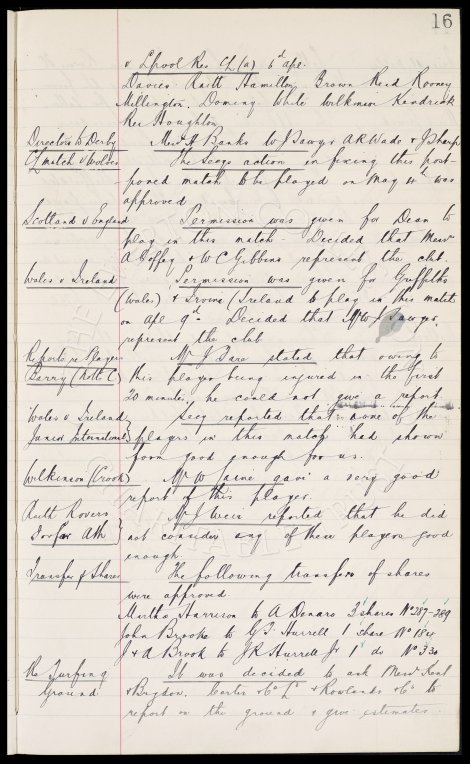 16
v Lpool Res CL (a) 6th Apl.
Davies Raitt Hamilton Brown Reid Rooney
Millington. Doming White Wilkinson Kendrick
Res Houghton
Directors to Derby Messrs H Banks W J Sawyer A R Wade & J Sharp
CL match v Wolves The Secys action in fixing this post-
poned match to be played on May 4th was
approved
Scotland v England Permission was given for Dean to
play in this match. Decided that Messrs
A Coffey & W C Gibbins represent the club.
Wales v Ireland Permission was given for Griffiths
(Wales) & Irvine (Ireland to play in this match
on Apl 9th. Decided that Mr W J Sawyer
represent the club
Report re Player Mr J Fare stated that owing to
Barry (Notts C) this player being injured in the first
20 minutes, he could not give a report.
Wales v Ireland Secy reported that none of the
Junior International players in this match had shown
form good enough for us.
Wilkinson (Crook) Mr W gave a very good
report of this player.
Raith Rovers Mr J Weir reported that he did
Forfar Ath not consider any of these players good
enough.
Transfer of Shares The following transfers of shares
were approved
Martha Harrison to A Denaro 3 shares No 287-289
John Brooke to G F Hurrell 1 share No 184
J & A Brook to J R Hurrell Jr 1 do No 330
Re Turfing It was decided to ask Messrs Kent
Ground & Brydon. Carter & Co Ld & Rowlands & Co to
report on the ground & give estimates.